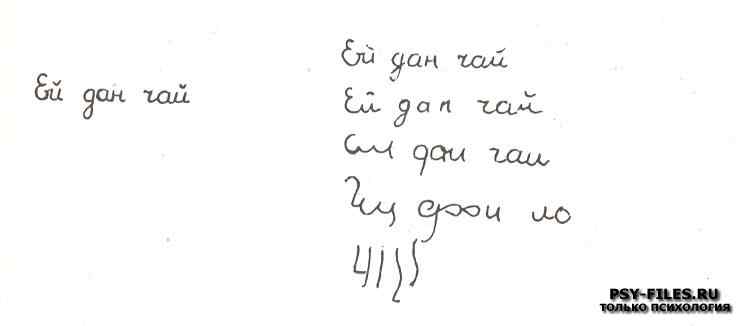 Ей дан чай
Ей дан чай
Ей дап чай
дои чаи
ло
PSY-FILES.RU
ТОЛЬКО ПСИХОЛОГИЯ